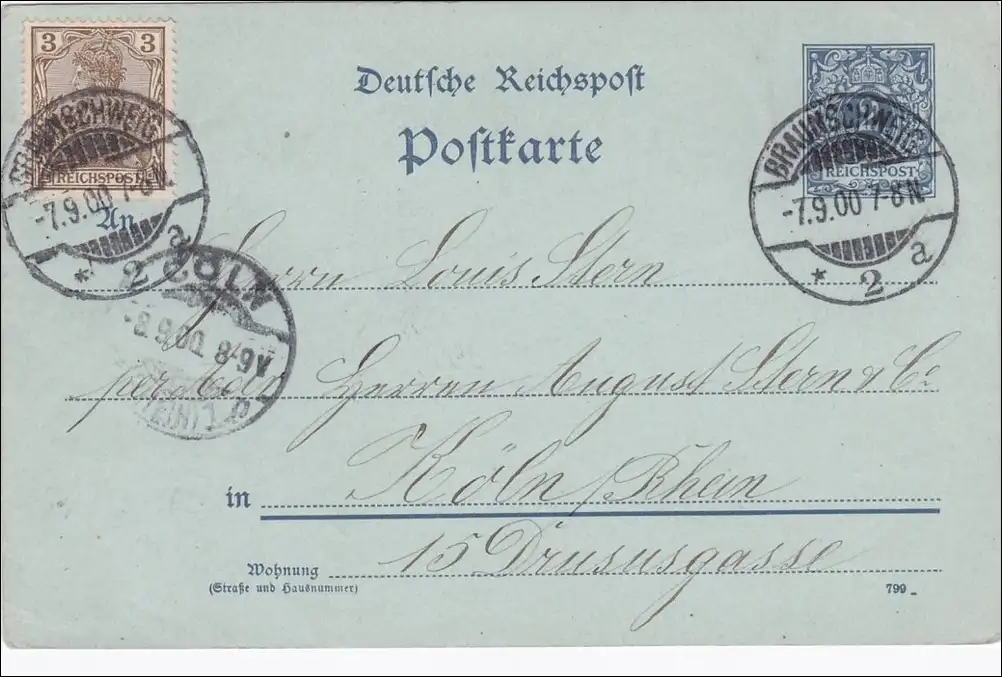 3 3
REICHSPOST
Deutsche Reichspost
Postkarte
REICHSPOST
BRAUNSCHWEIG
-7.9.00 7-8 N.
* 2 a
BRAUNSCHWEIG
-7.9.00 7-8 N.
* 2 a
An
Herrn Louis Stern
CÖLN
-8.9.00 8
per Herren August Stern & Co
in Köln / Rhein
Wohnung 15 Drususgasse
(Straße und Hausnummer)
799